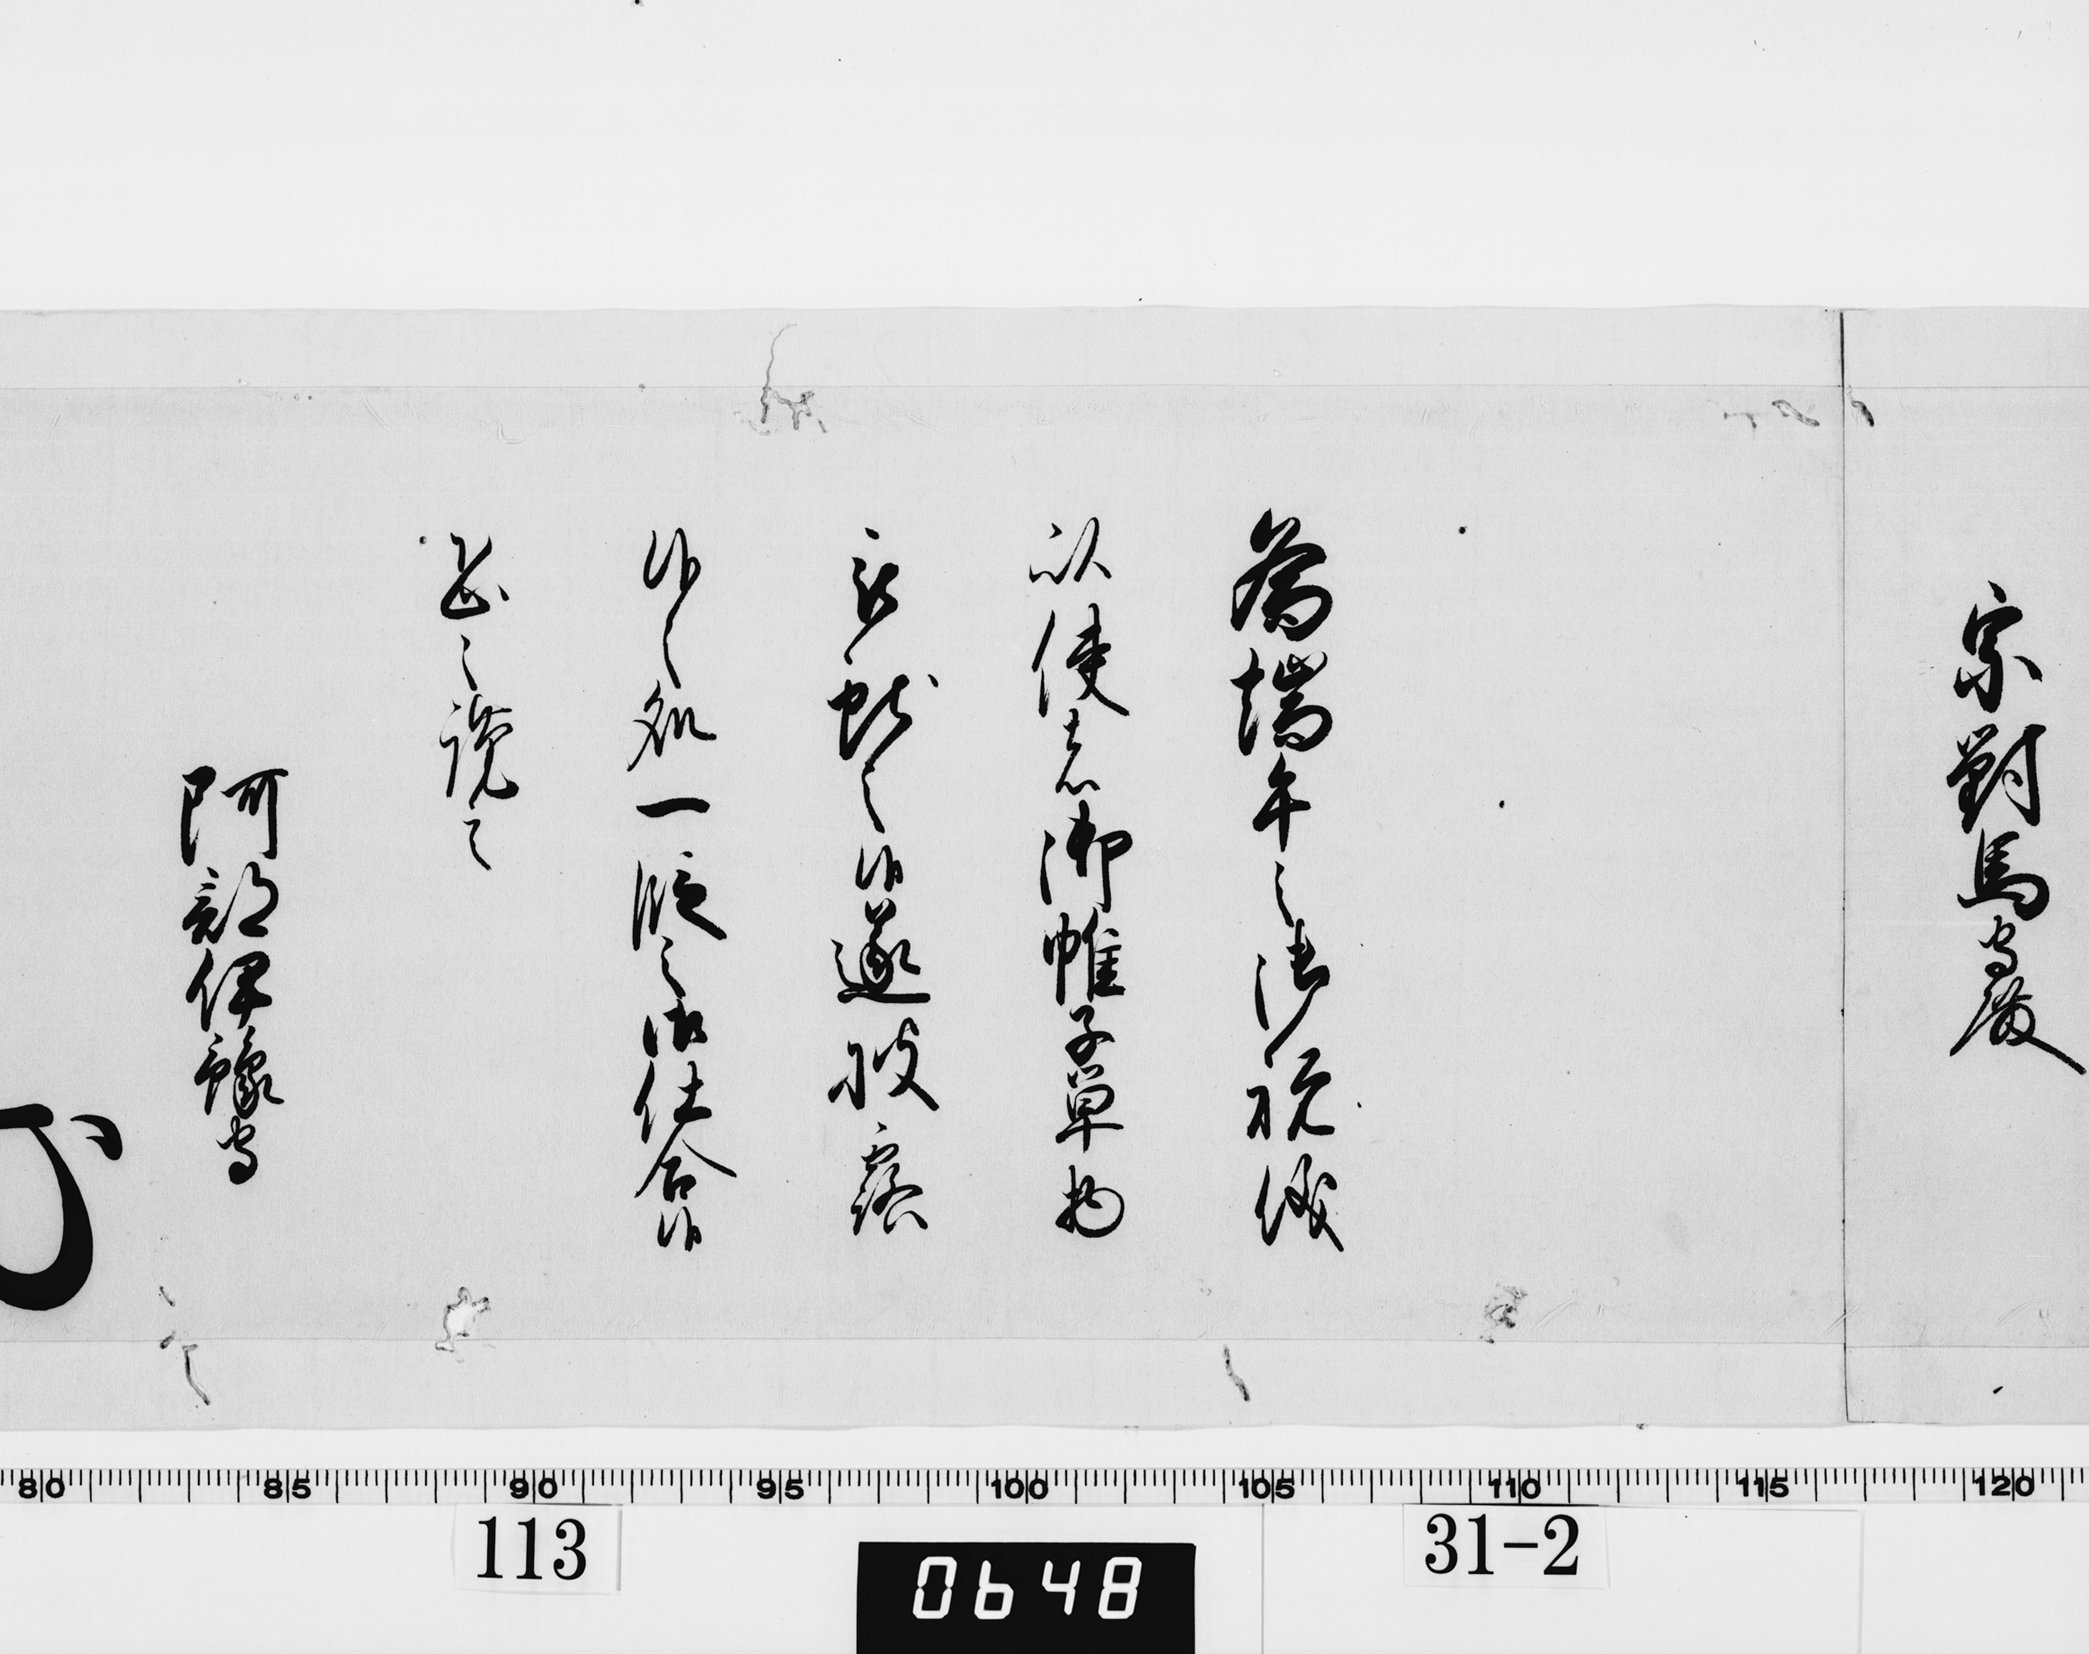 宗對馬守殿
為端午之御祝儀
以使者御帷子單物
被献之候遂披露
候之処一段之御仕合候
恐々謹言
阿部伊豫守
80 85 90 95 100 105 110 115 120
113
31-2
0648